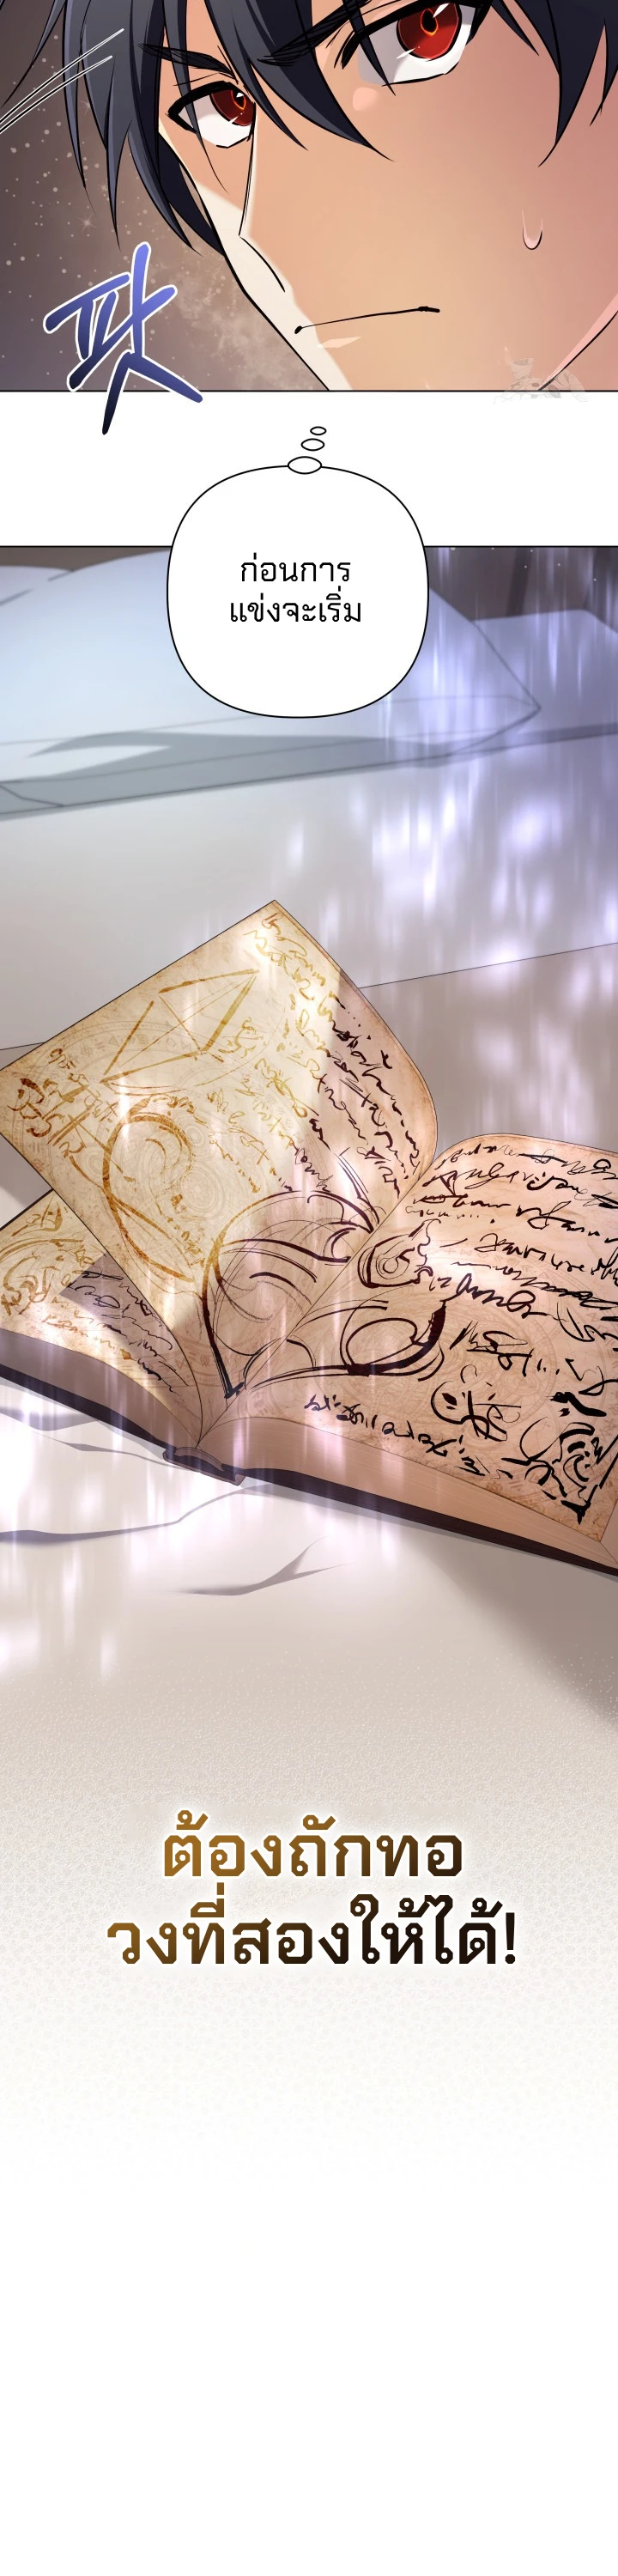 팟
ก่อนการ
แข่งจะเริ่ม
ต้องถักทอ
วงที่สองให้ได้!